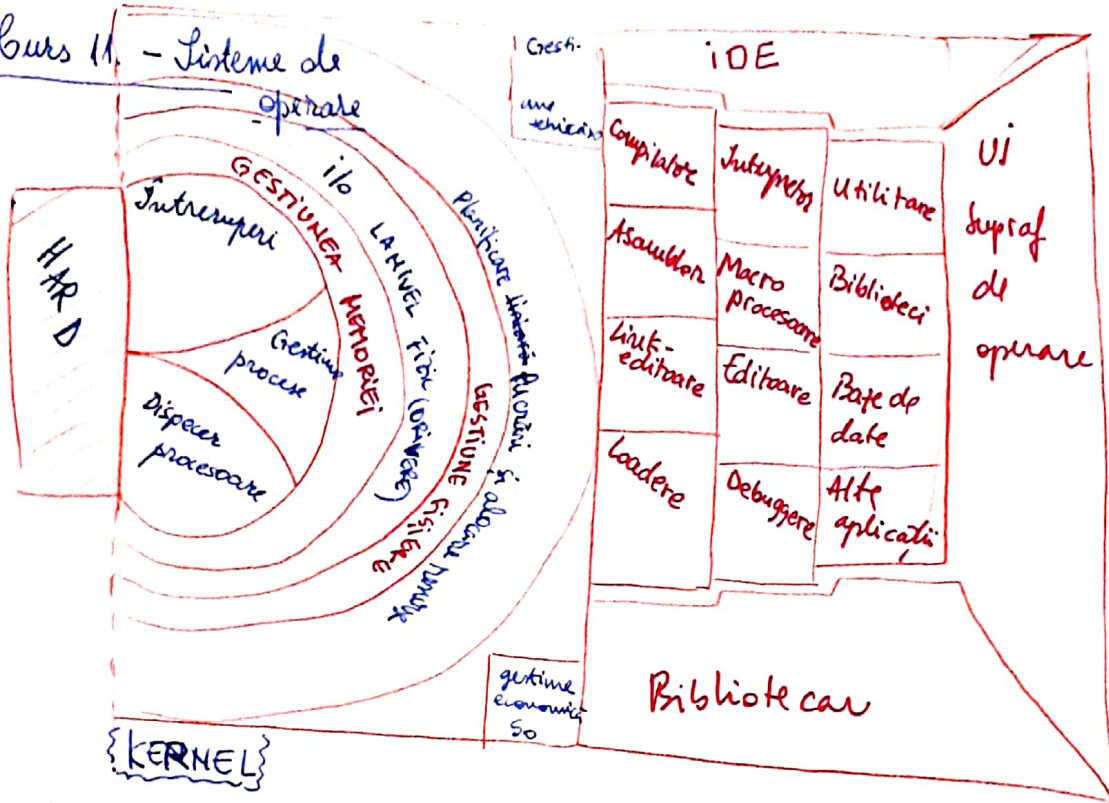 Curs 11. - Sisteme de
operare
HARD
Întreruperi
Gestiune
procese
Dispecer
procesoare
GESTIUNEA MEMORIEI
i/o LA NIVEL FIZIC (DRIVERE)
GESTIUNE FIȘIERE
Planificare lucrări și alocare resurse
Gesti-
une
gestiune
economică
SO
{KERNEL}
IDE
Compilatore
Asamblor
Link-
editoare
Loadere
Interpretor
Macro
procesoare
Editoare
Debuggere
Utilitare
Biblioteci
Baze de
date
Alte
aplicații
UI
Supraf
de
operare
Bibliotecar